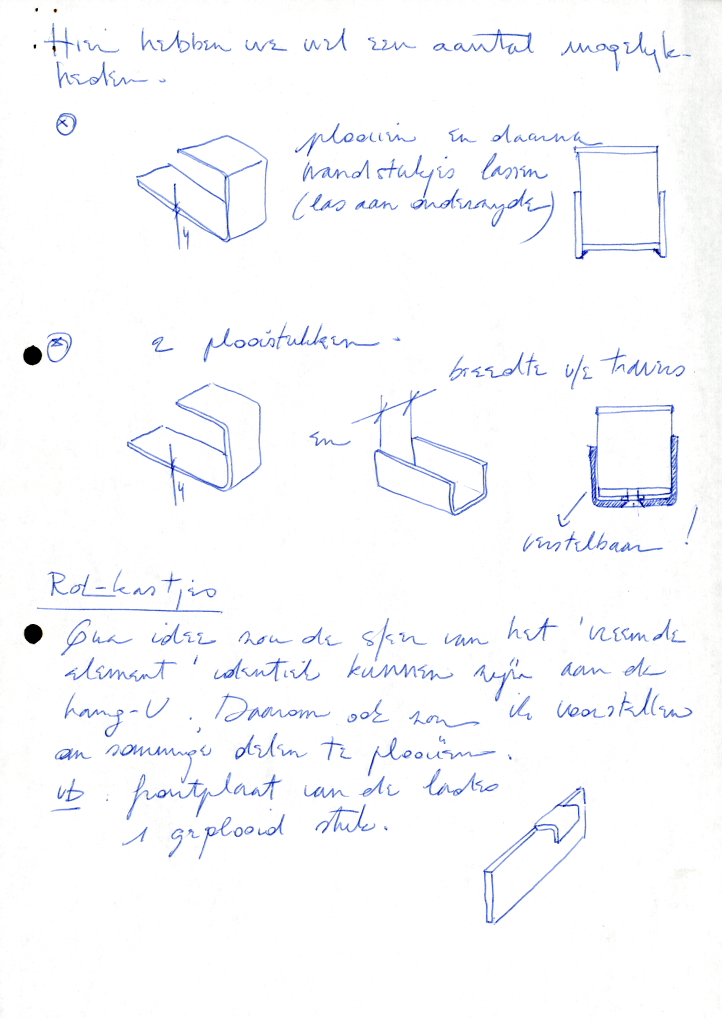 Hier hebben we wel een aantal mogelijk-
heden.
plooien en daarna
wandstukjes lassen
(las aan onderzijde)
4
2 plooistukken.
breedte v/e travers
en
4
verstelbaar !
Rol-kastjes
Qua idee zou de sfeer van het 'vreemde
element' identiek kunnen zijn aan de
hang-U. Daarom ook zou ik voorstellen
om sommige delen te plooiën.
vb. frontplaat van de lades
1 geplooid stuk.